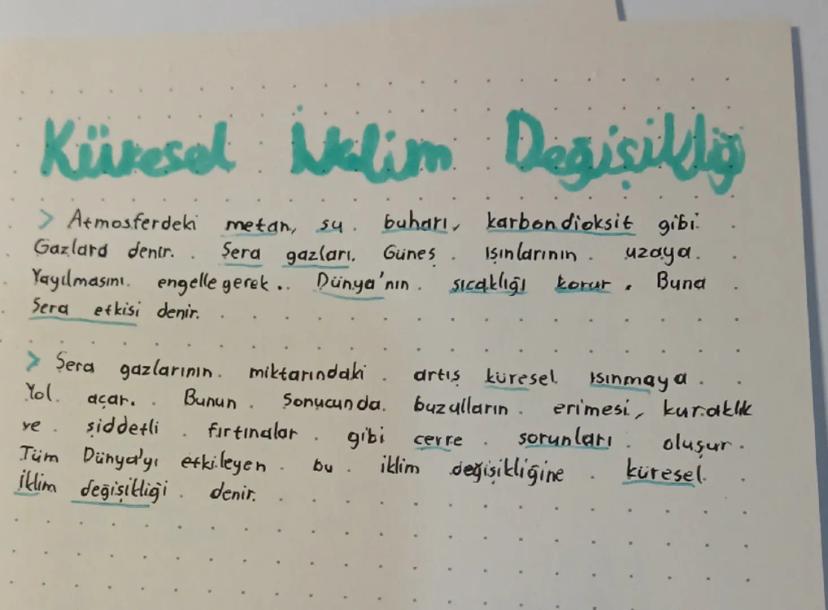 Küresel İklim Değişikliği
> Atmosferdeki metan, su buharı, karbondioksit gibi
Gazlara denir. Şera gazları, Güneş ışınlarının uzaya
Yayılmasını engellegerek. Dünya'nın sıcaklığı korur. Buna
Sera etkisi denir.
> Şera gazlarının miktarındaki artış küresel ısınmaya
Yol açar. Bunun Sonucunda buzulların erimesi, kuraklık
ve şiddetli fırtınalar gibi çevre sorunları oluşur.
Tüm Dünya'yı etkileyen bu iklim değişikliğine küresel
İklim değişikliği denir.